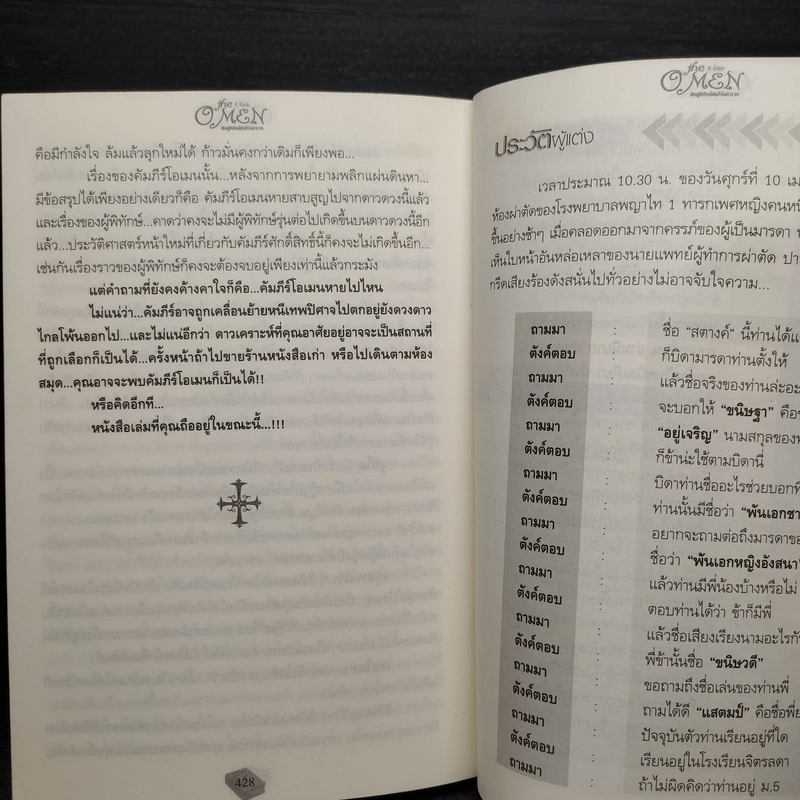 the ดิ โอเมน
OMEN
คือมีกำลังใจ ล้มแล้วลุกใหม่ได้ ก้าวมั่นคงกว่าเดิมก็เพียงพอ...
เรื่องของคัมภีร์โอเมนนั้น...หลังจากการพยายามพลิกแผ่นดินหา...
มีข้อสรุปได้เพียงอย่างเดียวก็คือ คัมภีร์โอเมนหายสาบสูญไปจากดาวดวงนี้แล้ว
และเรื่องของผู้พิทักษ์...คาดว่าคงจะไม่มีผู้พิทักษ์รุ่นต่อไปเกิดขึ้นบนดาวดวงนี้อีก
แล้ว...ประวัติศาสตร์หน้าใหม่ที่เกี่ยวกับคัมภีร์ศักดิ์สิทธิ์นี้ก็คงจะไม่เกิดขึ้นอีก...
เช่นกันเรื่องราวของผู้พิทักษ์ก็คงต้องจบอยู่เพียงเท่านี้แล้วกระมัง
แต่คำถามที่ยังคงค้างคาใจก็คือ...คัมภีร์โอเมนหายไปไหน
ไม่แน่ว่า...คัมภีร์อาจถูกเคลื่อนย้ายหนีเทพปีศาจไปตกอยู่ยังดวงดาว
ไกลโพ้นออกไป...และไม่แน่อีกว่า ดาวเคราะห์ที่คุณอาศัยอยู่อาจจะเป็นสถานที่
ที่ถูกเลือกก็เป็นได้...ครั้งหน้าถ้าไปขายร้านหนังสือเก่า หรือไปเดินตามห้อง
สมุด...คุณอาจจะพบคัมภีร์โอเมนก็เป็นได้!!
หรือคิดอีกที...
หนังสือเล่มที่คุณถืออยู่ในขณะนี้...!!!
428
the ดิ โอเมน
OMEN
ประวัติผู้แต่ง
เวลาประมาณ 10.30 น. ของวันศุกร์ที่ 10 เม
ห้องผ่าตัดของโรงพยาบาลพญาไท 1 ทารกเพศหญิงคนหนึ
ขึ้นอย่างช้าๆ เมื่อคลอดออกมาจากครรภ์ของผู้เป็นมารดา
เห็นใบหน้าอันหล่อเหลาของนายแพทย์ผู้ทำการผ่าตัด ปา
กรีดเสียงร้องดังสนั่นไปทั่วอย่างไม่อาจจับใจความ...
ถามมา : ชื่อ "สตางค์" นี้ท่านได้แ
ตังค์ตอบ : ก็บิดามารดาท่านตั้งให้
ถามมา : แล้วชื่อจริงของท่านล่ะอะ
ตังค์ตอบ : จะบอกให้ "ขนิษฐา" คือ
ถามมา : "อยู่เจริญ" นามสกุลของท
ตังค์ตอบ : ก็ข้าน่ะใช้ตามบิดานี่
ถามมา : บิดาท่านชื่ออะไรช่วยบอกที
ตังค์ตอบ : ท่านนั้นมีชื่อว่า "พันเอกชา
ถามมา : อยากจะถามต่อถึงมารดาขอ
ตังค์ตอบ : ชื่อว่า "พันเอกหญิงอังสนา"
ถามมา : แล้วท่านมีพี่น้องบ้างหรือไม่
ตังค์ตอบ : ตอบท่านได้ว่า ข้าก็มีพี่
ถามมา : แล้วชื่อเสียงเรียงนามอะไรกั
ตังค์ตอบ : พี่ข้านั้นชื่อ "ขนิษวดี"
ถามมา : ขอถามถึงชื่อเล่นของท่านพี่
ตังค์ตอบ : ถามได้ดี "แสตมป์" คือชื่อพี่
ถามมา : ปัจจุบันตัวท่านเรียนอยู่ที่ใด
ตังค์ตอบ : เรียนอยู่ในโรงเรียนจิตรลดา
ถามมา : ถ้าไม่ผิดคิดว่าท่านอยู่ ม.5